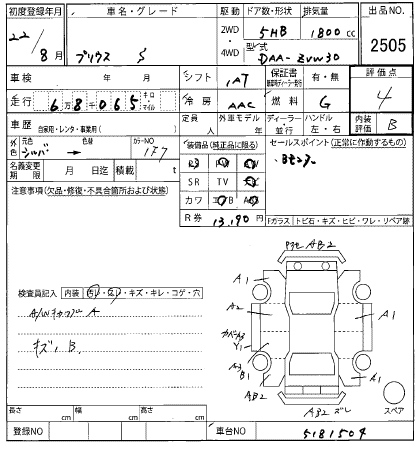 初度登録年月 車名・グレード 駆動 ドア数・形状 排気量 出品NO.
22/8月 プリウス S 2WD 4WD 5HB 1800cc 2505
型式 DAA-ZVW30
車検 年 月 シフト IAT 保証書 有・無 評価点
走行 6万8千065 キロ・マイル 冷房 AAC 燃料 G 4
車歴 自家用・レンタ・事業用( ) 定員 人 外車モデル ディーラー・並行 ハンドル 左・右 内装評価 B
外色 元色 シルバー → 色替 カラーNO 1F7 装備品(純正品に限る) セールスポイント(正常に作動するもの)
名義変更期限 月 日迄 積載 t SR TV
注意事項(欠品・修復・不具合箇所および状態) カワ
R券 13,190円 Fガラス トビ石・キズ・ヒビ・ワレ・リペア跡
AB2
A1
A2 A1
Y1
A3
B1 A1
AB2 AB2 ズレ
検査員記入 内装 ・キズ・キレ・コゲ・穴
A/Wキャップ A
キズ、B
長さ cm 幅 cm 高さ cm スペア
登録NO 車台NO 5181504